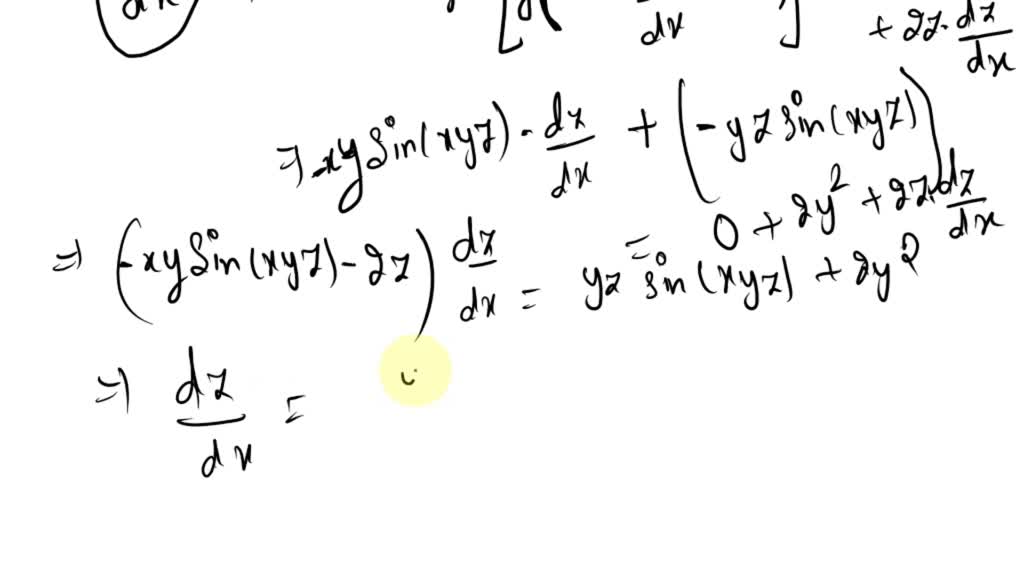 dx [y( dx ] + 2z·dz/dx
⇒ -xy sin(xyz)·dz/dx + (-yz sin(xyz))
= 0 + 2y² + 2z·dz/dx
⇒ (-xy sin(xyz) - 2z) dz/dx = yz sin(xyz) + 2y²
⇒ dz/dx =